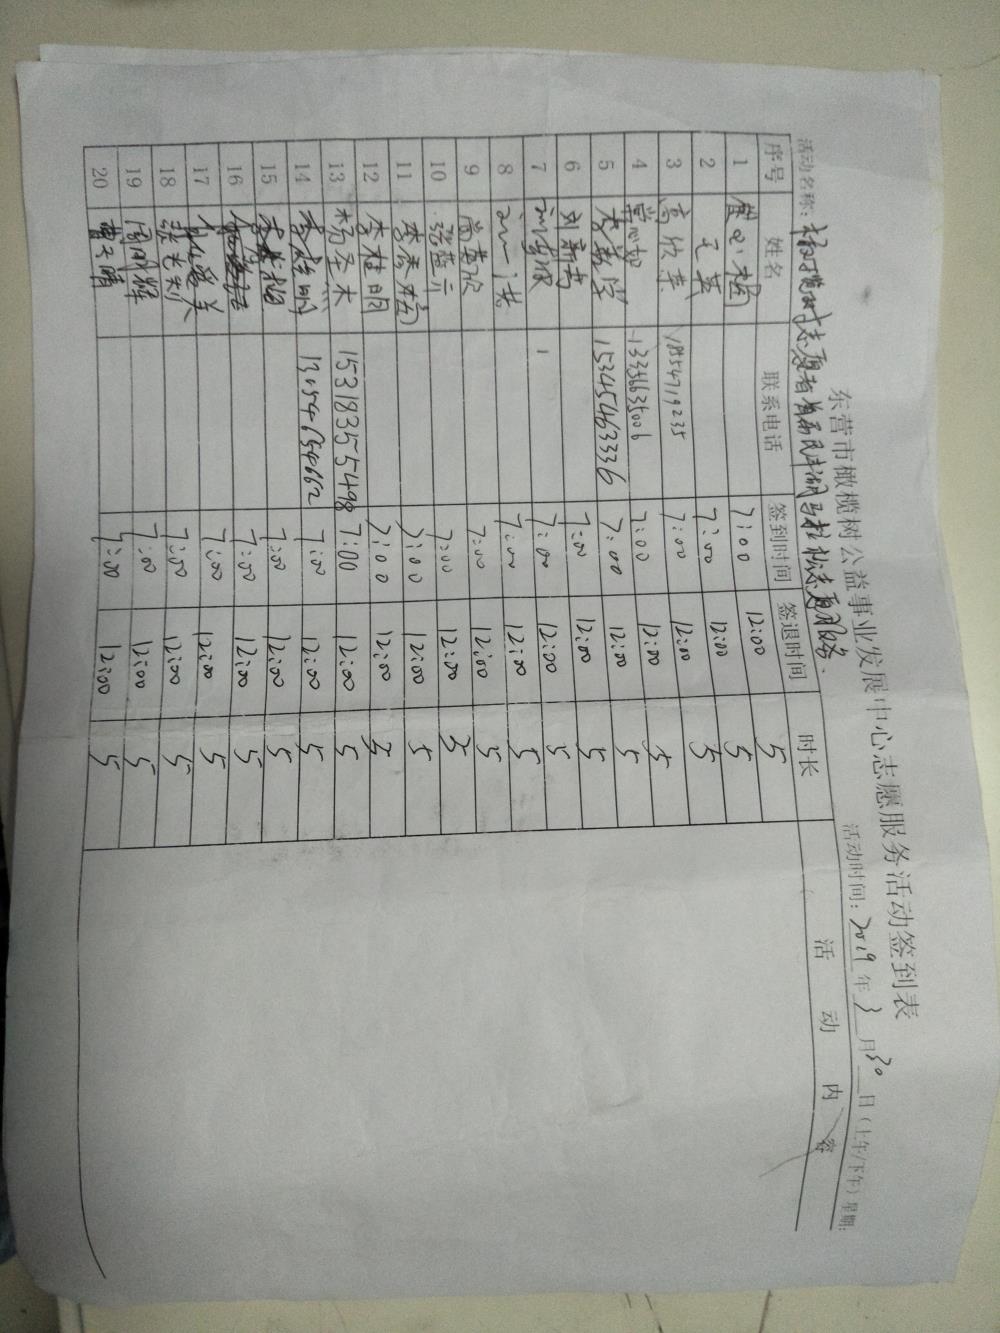 东营市橄榄树公益事业发展中心志愿服务活动签到表
活动时间：2019年3月30日（上午/下午）星期：
活动名称：橄榄树志愿者首届民丰湖马拉松志愿服务.
序号 姓名 联系电话 签到时间 签退时间 时长 活动内容
1 7:00 12:00 5
2 王英 7:00 12:00 5
3 高欣荣 18954719235 7:00 12:00 5
4 13356635006 7:00 12:00 5
5 李教学 15345463336 7:00 12:00 5
6 刘新芳 7:00 12:00 5
7 7:00 12:00 5
8 7:00 12:00 5
9 尚英欣 7:00 12:00 5
10 张蓝云 7:00 12:00 5
11 李秀梅 7:00 12:00 5
12 李桂明 7:00 12:00 5
13 杨圣木 15318355498 7:00 12:00 5
14 13054654662 7:00 12:00 5
15 7:00 12:00 5
16 7:00 12:00 5
17 7:00 12:00 5
18 张志刚 7:00 12:00 5
19 周明辉 7:00 12:00 5
20 曹文晴 7:00 12:00 5